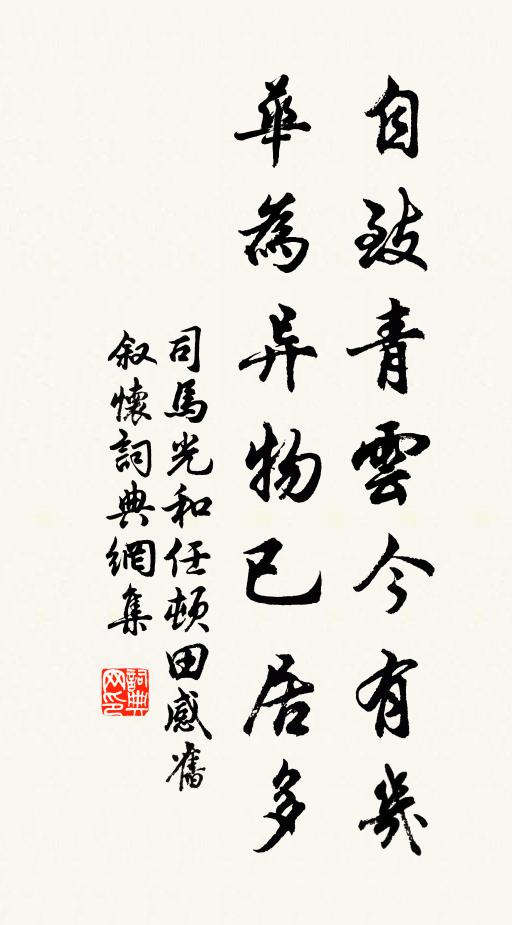 自致青雲今有幾
華為异物已居多
司馬光和任頓田感舊
叙懷詞典網集
詞典网印